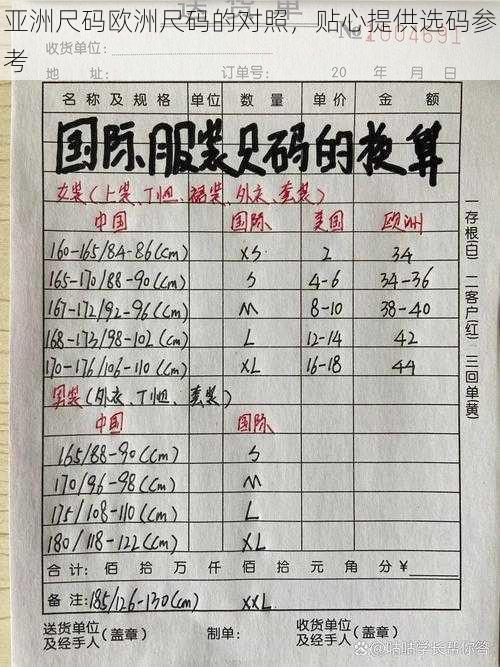 亚洲尺码欧洲尺码的对照，贴心提供选码参
考
送货单
收货单位: №1004691
地址: 订单号: 20 年 月 日
名称及规格 单位 数量 单价 金额
国际服装尺码的换算
女装(上装、T恤、裙装、外衣、套装)
中国 国际 美国 欧洲
160-165/84-86(cm) XS 2 34
165-170/88-90(cm) S 4-6 34-36
167-172/92-96(cm) M 8-10 38-40
168-173/98-102(cm) L 12-14 42
170-176/106-110(cm) XL 16-18 44
男装(外衣、T恤、套装)
中国 国际
165/88-90(cm) S
170/96-98(cm) M
175/108-110(cm) L
180/118-122(cm) XL
合计: 佰 拾 万 仟 佰 拾 元 角 分 ¥
备注: 185/126-130(cm) XXL
送货单位
及经手人(盖章) 制单: 收货单位
及经手人(盖章)
一存根(白) 二客户(红) 三回单(黄)